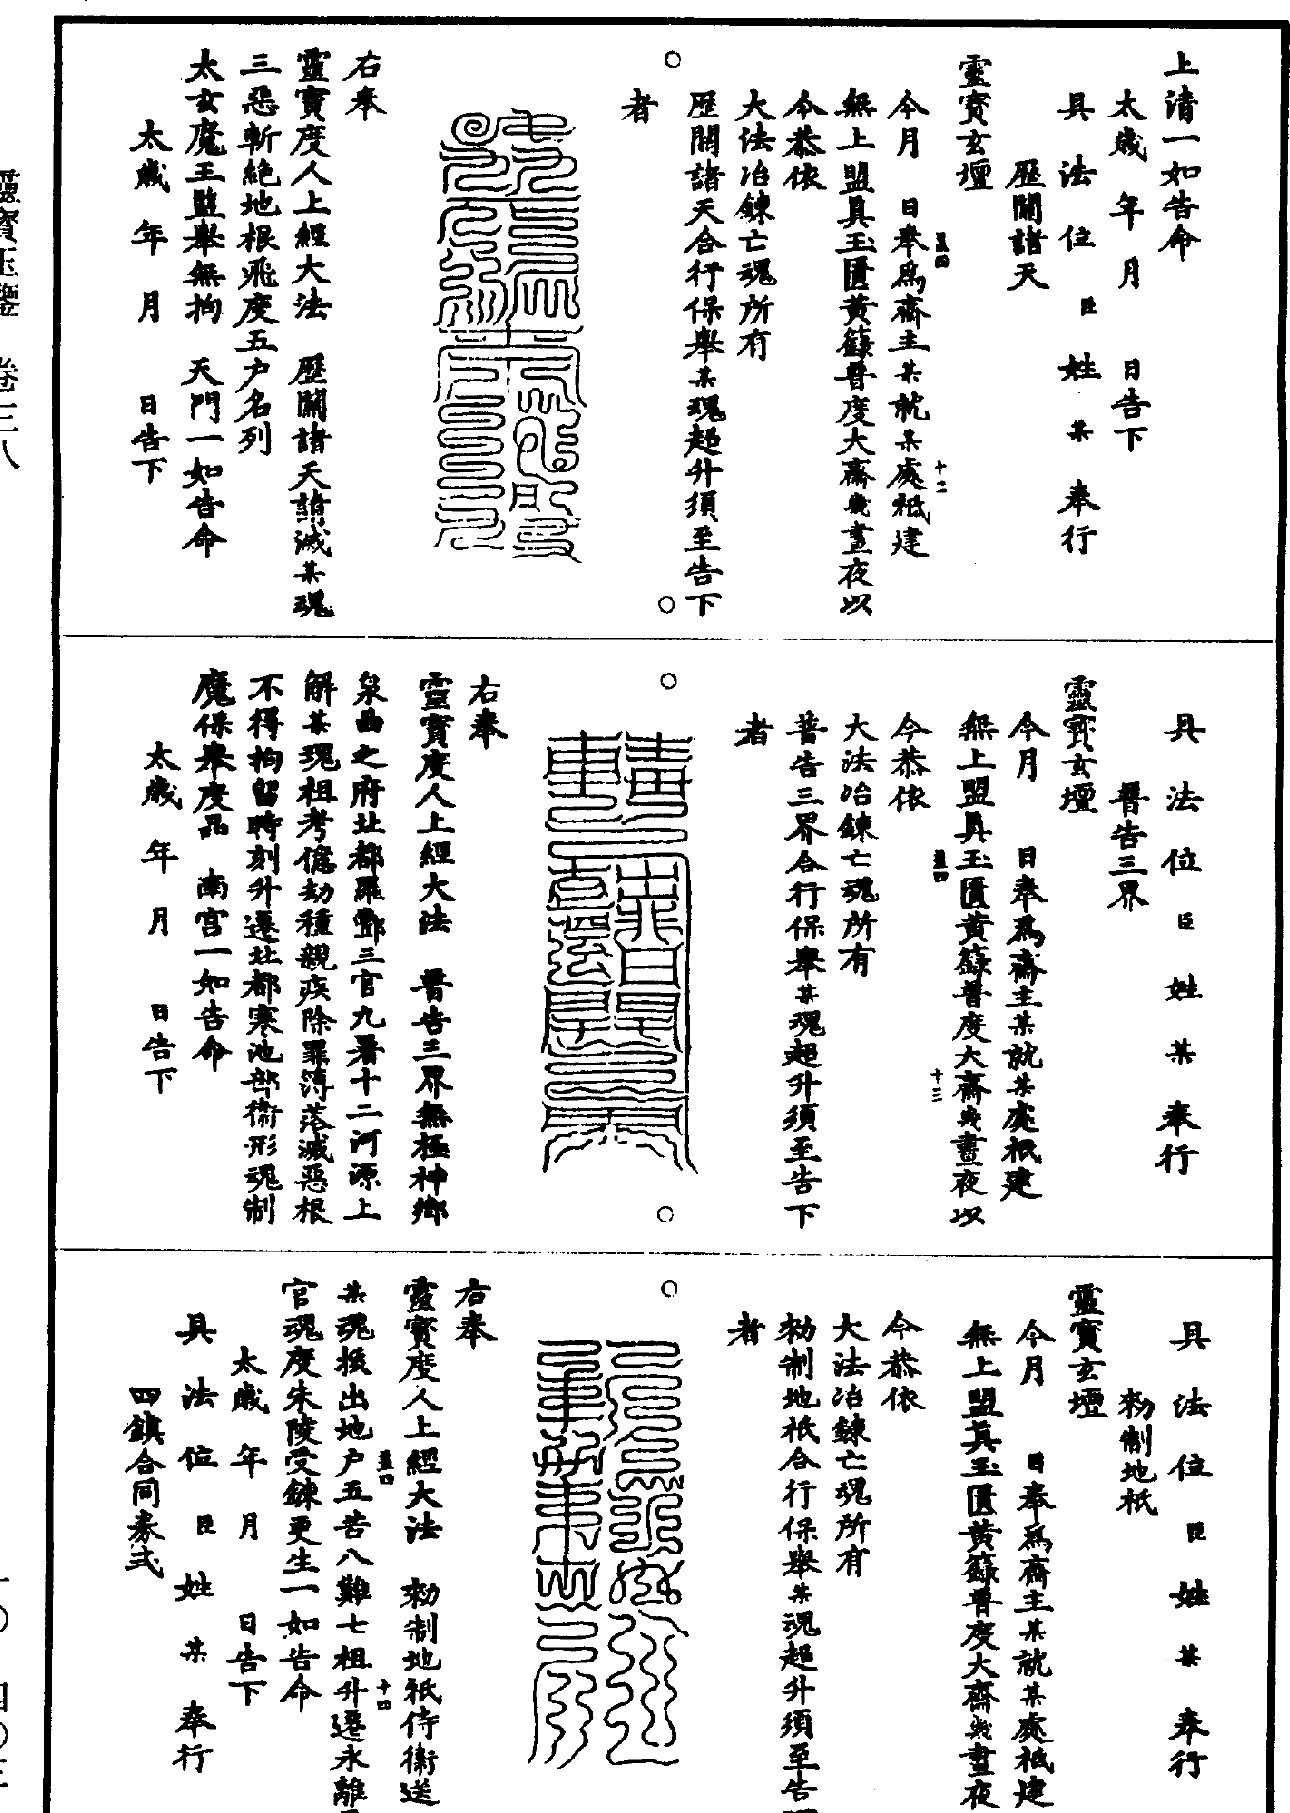 上清一如告命
太歲 年 月 日告下
具法位臣姓某奉行
歷關諸天
靈寶玄壇
今月 日奉爲齋主某就某處祗建
無上盟真玉匱黃籙普度大齋幾晝夜以
今恭依
大法冶鍊亡魂所有
歷關諸天合行保舉某魂超升須至告下
者
右奉
靈寶度人上經大法 歷關諸天請滅某魂
三惡斬絶地根飛度五户名列
太玄魔王監舉無拘 天門一如告命
太歲 年 月 日告下
具法位臣姓某奉行
普告三界
靈寶玄壇
今月 日奉爲齋主某就某處祗建
無上盟真玉匱黃籙普度大齋幾晝夜以
今恭依
大法冶鍊亡魂所有
普告三界合行保舉某魂超升須至告下
者
右奉
靈寶度人上經大法 普告三界無極神鄉
泉曲之府北都羅酆三官九署十二河源上
解某魂祖考億劫種親疾除罪簿落滅惡根
不得拘留時刻升遷北都寒池部衛形魂制
魔保舉度品 南宮一如告命
太歲 年 月 日告下
具法位臣姓某奉行
勑制地祇
靈寶玄壇
今月 日奉爲齋主某就某處祗建
無上盟真玉匱黃籙普度大齋幾晝夜
今恭依
大法冶鍊亡魂所有
勑制地祇合行保舉某魂超升須至告
者
右奉
靈寶度人上經大法 勑制地祇侍衛送
某魂拔出地户五苦八難七祖升遷永離
官魂度朱陵受鍊更生一如告命
太歲 年 月 日告下
具法位臣姓某奉行
四鎮合同券式
靈寶玉鑒 卷二八